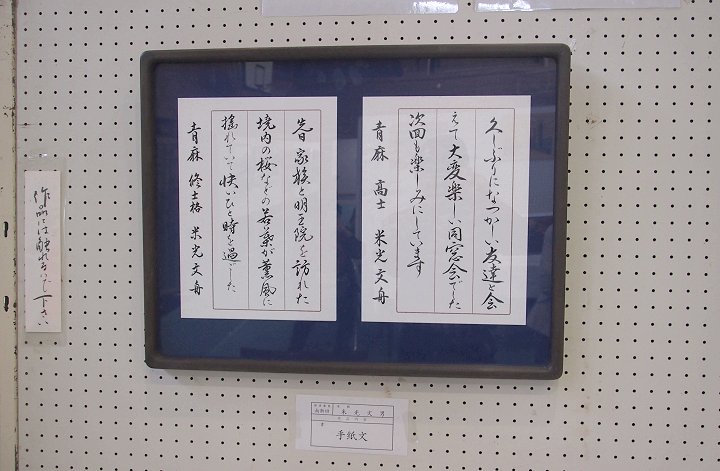 久しぶりになつかしい友達と会
えて大変楽しい同窓会でした
次回も楽しみにしています
青麻 高士 米光文舟
先日家族と明王院を訪れた
境内の桜などの若葉が薫風に
揺れていて快いひと時を過ごした
青麻 修士格 米光文舟
作品には触れないで下さい
米光文男
手紙文